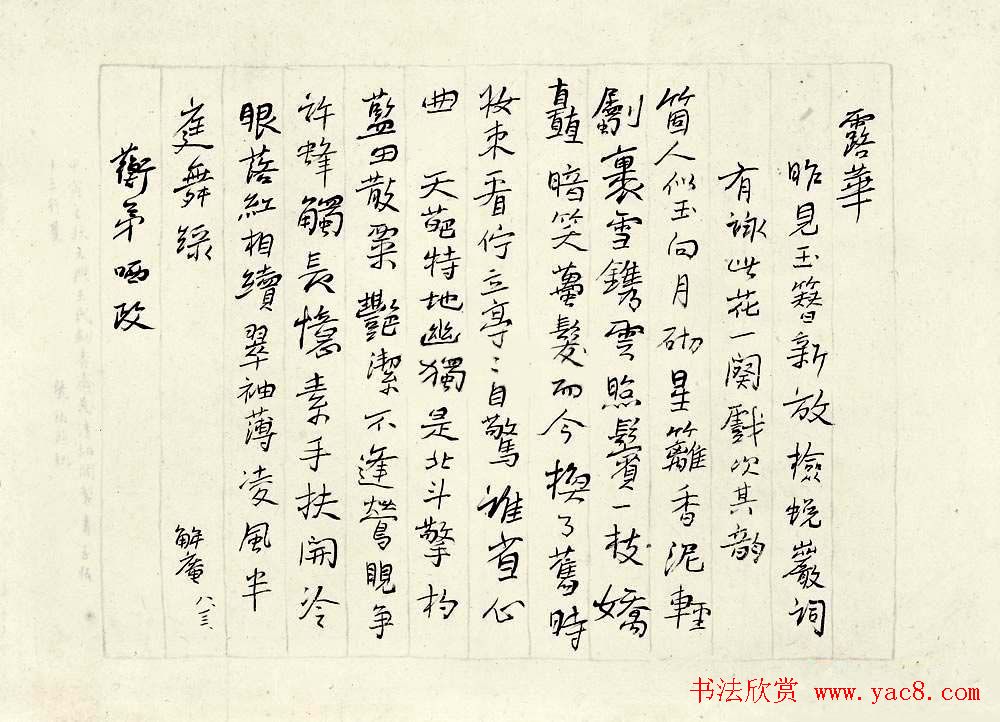 露華
昨見玉簪新放檢蛻巖詞
有詠此花一闋戲次其韵
箇人似玉向月砌星籬香泥輕
劚裏雪鐫雲照鬢一枝嬌
矗暗笑蠆髮而今換了舊時
妝束看佇立亭〻自驚誰省心
曲 天葩特地幽獨是北斗擎杓
藍田散粟艷潔不逢鶯覥爭
許蜂觸長憶素手扶開冷
眼落紅相續翠袖薄凌風半
庭舞綠
蘅弟哂政
解庵 八三
书法欣赏 www.yac8.com